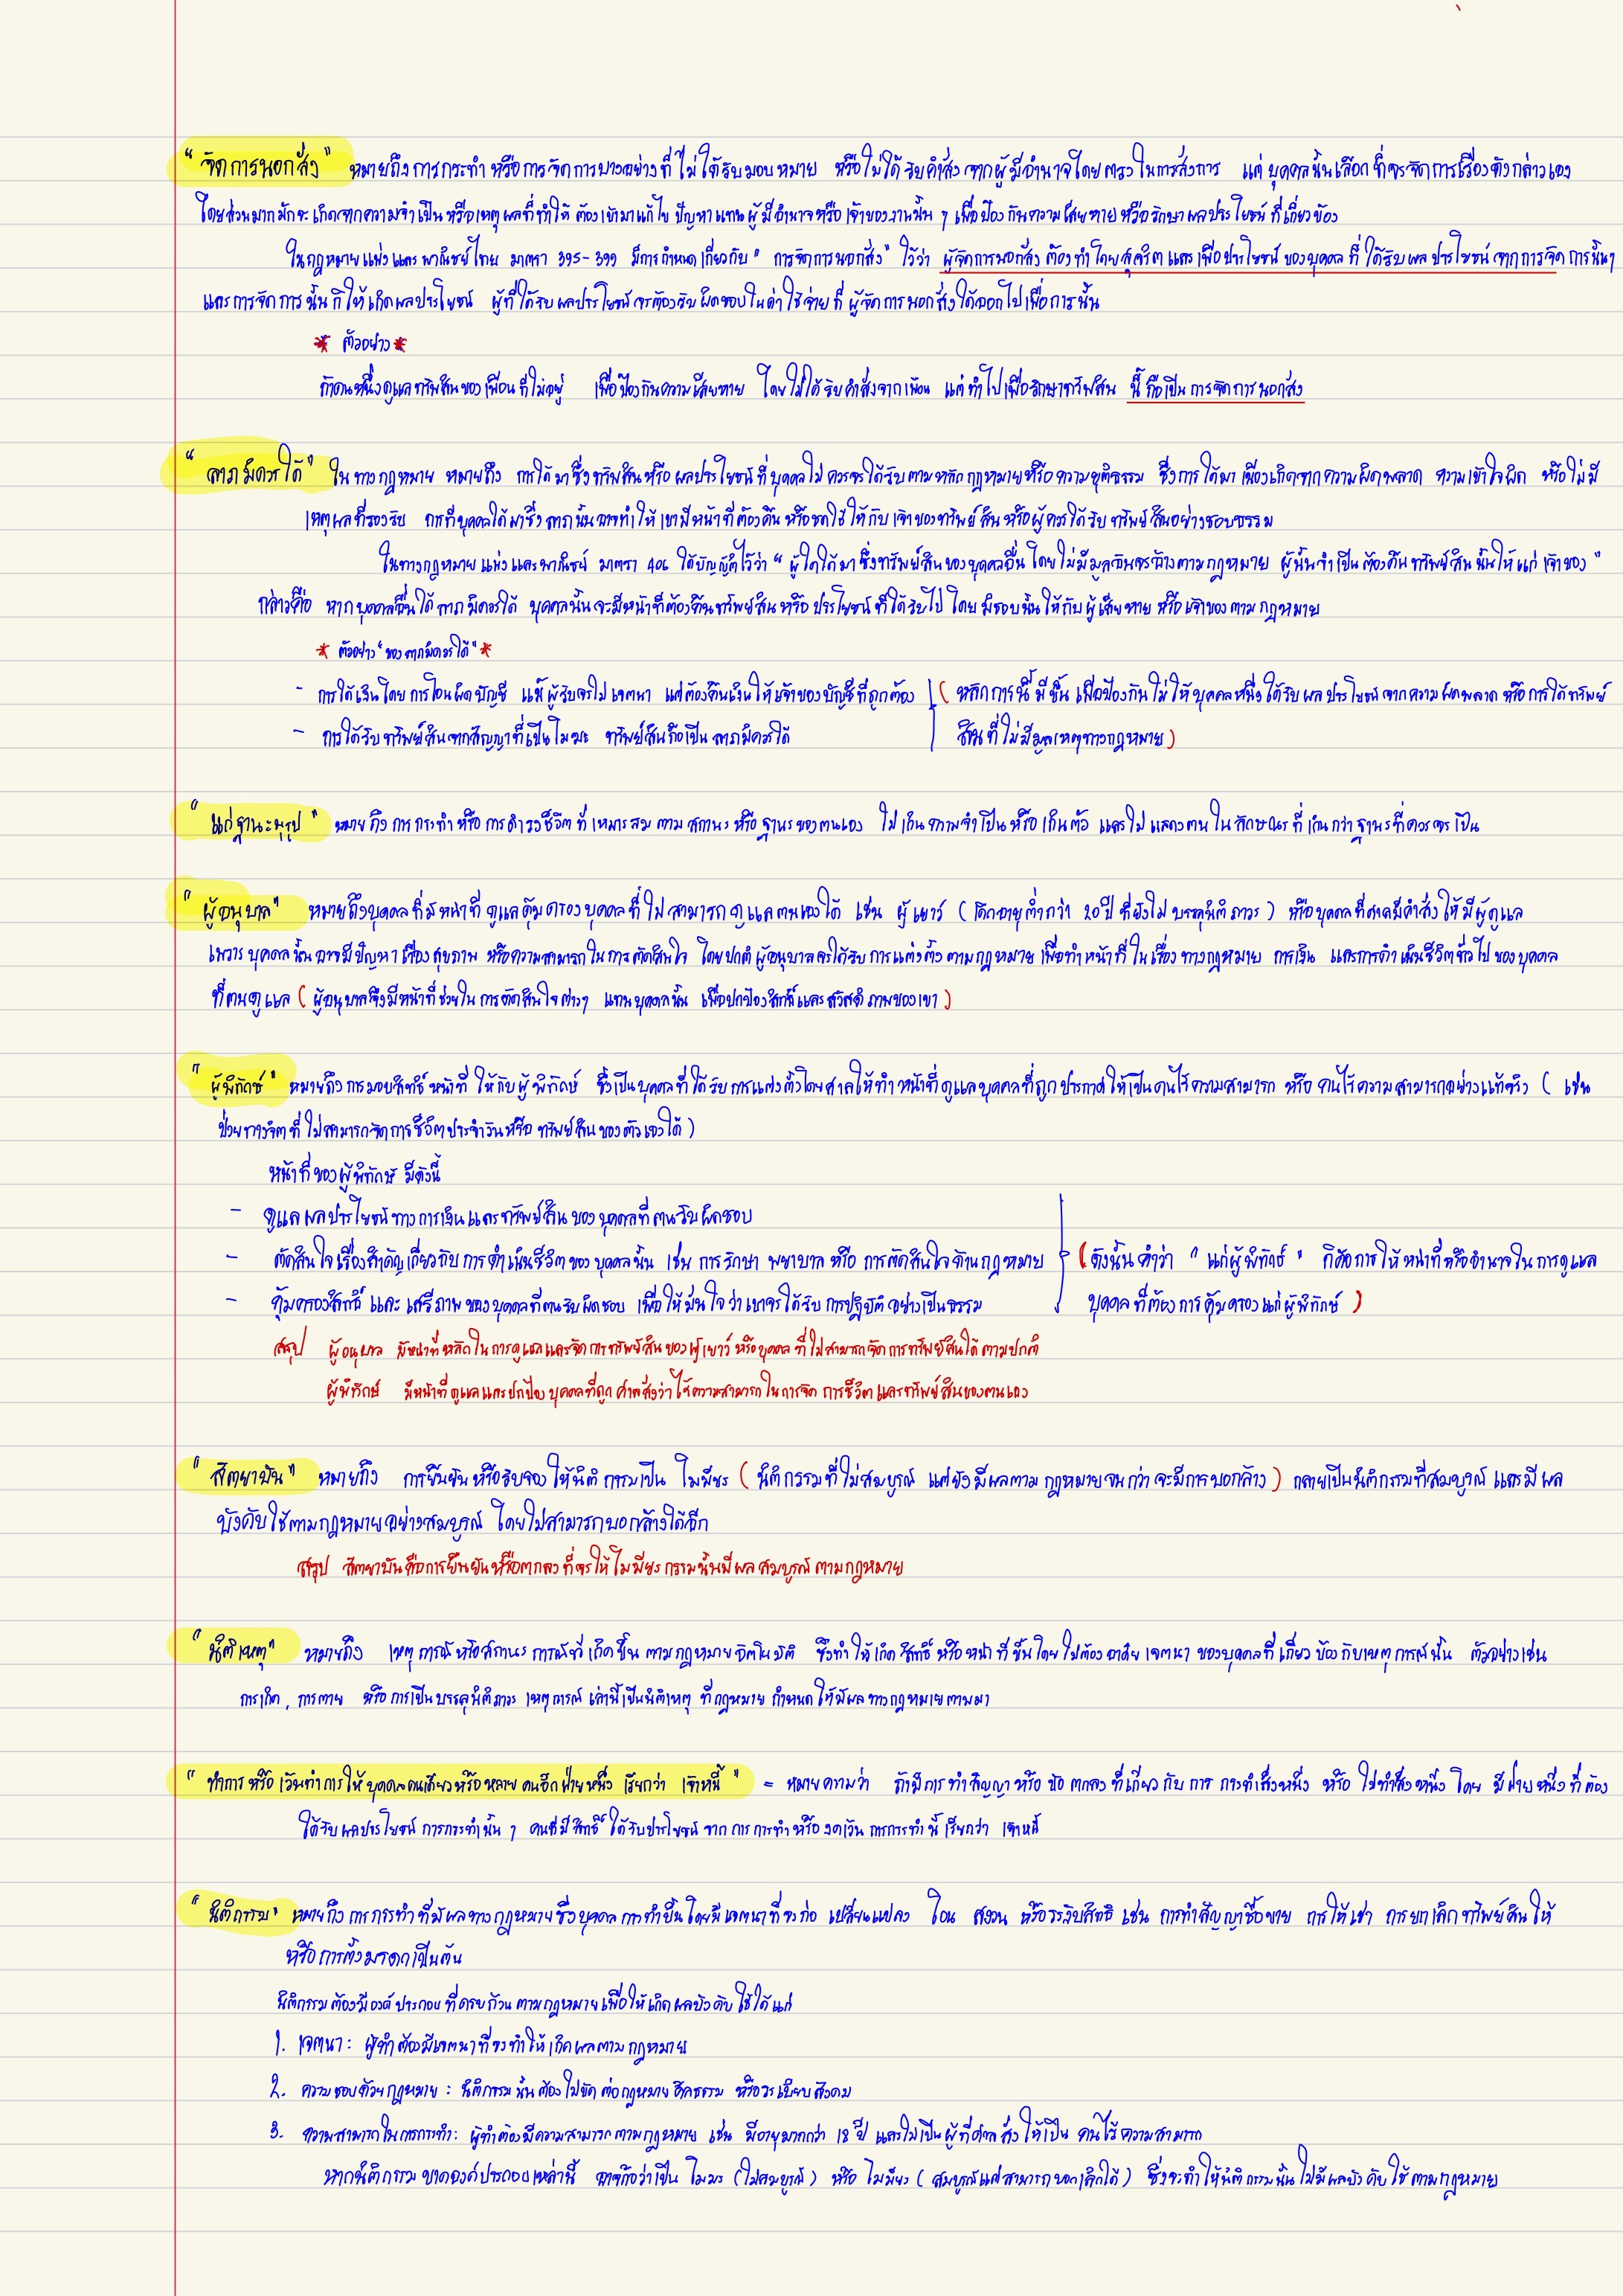 “ จัดการนอกสั่ง ” หมายถึงการกระทำ หรือการจัดการบางอย่างที่ ไม่ได้รับมอบหมาย หรือไม่ได้ รับคำสั่งจากผู้มีอำนาจโดยตรงในการสั่งการ แต่ บุคคลนั้นเลือก ที่จะจัดการเรื่องดังกล่าวเอง
โดยส่วนมากมักจะเกิดจากความจำเป็น หรือเหตุผลที่ทำให้ ต้องเข้ามาแก้ไข ปัญหาแทนผู้มีอำนาจหรือเจ้าของงานนั้น ๆ เพื่อป้องกันความเสียหาย หรือรักษาผลประโยชน์ ที่เกี่ยวข้อง
ในกฎหมายแพ่งและพาณิชย์ไทย มาตรา 395-399 มีการกำหนดเกี่ยวกับ " การจัดการนอกสั่ง " ไว้ว่า ผู้จัดการนอกสั่ง ต้องทำโดยสุจริต และเพื่อประโยชน์ ของบุคคล ที่ ได้รับ ผลประโยชน์ จากการจัดการนั้นๆ
และการจัดการนั้น ก่อให้เกิดผลประโยชน์ ผู้ที่ได้รับผลประโยชน์จะต้องรับผิดชอบในค่าใช้จ่ายที่ ผู้จัดการนอกสั่งได้ออกไปเพื่อการนั้น
* ตัวอย่าง *
ถ้าคนหนึ่งดูแลทรัพสินของเพื่อนที่ไม่อยู่ เพื่อป้องกันความเสียหาย โดยไม่ได้รับคำสั่งจากเพื่อน แต่ทำไปเพื่อรักษาทรัพสิน นี้ถือเป็นการจัดการนอกสั่ง
“ ลาภมิควรได้ ” ในทางกฎหมาย หมายถึง การได้มาซึ่งทรัพสินหรือผลประโยชน์ที่บุคคลไม่ควรจะได้รับตามหลักกฎหมายหรือความยุติธรรม ซึ่งการได้มาเนื่องเกิดจากความผิดพลาด ความเข้าใจผิด หรือไม่มี
เหตุผลที่รองรับ การที่บุคคลได้มาซึ่ง ลาภนั้นอาจทำให้เขามีหน้าที่ต้องคืนหรือชดใช้ให้กับเจ้าของทรัพย์สินหรือผู้ควรได้รับทรัพย์สินอย่างชอบธรรม
ในทางกฎหมายแพ่งและพาณิชย์ มาตรา 406 ได้บัญญัติไว้ว่า “ ผู้ใดได้มาซึ่งทรัพย์สินของบุคคลอื่นโดยไม่มีมูลอันจะอ้างตามกฎหมาย ผู้นั้นจำเป็นต้องคืนทรัพย์สินนั้นให้แก่เจ้าของ ”
กล่าวคือ หากบุคคลอื่นได้ลาภมิควรได้ บุคคลนั้นจะมีหน้าที่ต้องคืนทรัพย์สินหรือประโยชน์ที่ได้รับไปโดยมิชอบนั้นให้กับผู้เสียหายหรือเจ้าของตามกฎหมาย
* ตัวอย่าง “ของลาภมิควรได้” *
- การได้เงินโดยการโอนผิดบัญชี แม้ผู้รับจะไม่เจตนา แต่ต้องคืนเงินให้เจ้าของบัญชีที่ถูกต้อง ( หลักการนี้มีขึ้นเพื่อป้องกันไม่ให้บุคคลหนึ่งได้รับผลประโยชน์จากความผิดพลาด หรือการได้ทรัพย์
- การได้รับทรัพย์สินจากสัญญาที่เป็นโมฆะ ทรัพย์สินถือเป็นลาภมิควรได้ สินที่ไม่มีมูลเหตุทางกฎหมาย )
“ แก่ฐานะนุรูป ” หมายถึงการกระทำหรือการดำรงชีวิตที่เหมาะสมตามสถานะหรือฐานะของตนเอง ไม่เกินความจำเป็นหรือเกินตัว และไม่แสดงตนในลักษณะที่เกินกว่าฐานะที่ควรจะเป็น
“ ผู้อนุบาล ” หมายถึงบุคคลที่มีหน้าที่ดูแลคุ้มครองบุคคลที่ไม่สามารถดูแลตนเองได้ เช่น ผู้เยาว์ ( เด็กอายุต่ำกว่า 20 ปี ที่ยังไม่บรรลุนิติภาวะ ) หรือบุคคลที่ศาลมีคำสั่งให้มีผู้ดูแล
เพราะบุคคลนั้นอาจมีปัญหาเรื่องสุขภาพ หรือความสามารถในการตัดสินใจ โดยปกติผู้อนุบาลจะได้รับการแต่งตั้งตามกฎหมายเพื่อทำหน้าที่ในเรื่องทางกฎหมาย การเงิน และการดำเนินชีวิตทั่วไปของบุคคล
ที่ตนดูแล ( ผู้อนุบาลจึงมีหน้าที่ช่วยในการตัดสินใจต่างๆ แทนบุคคลนั้น เพื่อปกป้องสิทธิ์และสวัสดิภาพของเขา )
“ ผู้พิทักษ์ ” หมายถึงการมอบสิทธิ์หน้าที่ ให้กับผู้พิทักษ์ ซึ่งเป็นบุคคลที่ได้รับการแต่งตั้งโดยศาลให้ทำหน้าที่ดูแลบุคคลที่ถูกประกาศให้เป็นคนไร้ความสามารถ หรือ คนไร้ความสามารถอย่างแท้จริง ( เช่น
ป่วยทางจิตที่ไม่สามารถจัดการชีวิตประจำวันหรือทรัพย์สินของตัวเองได้ )
หน้าที่ของผู้พิทักษ์ มีดังนี้
- ดูแลผลประโยชน์ทางการเงินและทรัพย์สินของบุคคลที่ตนรับผิดชอบ
- ตัดสินใจเรื่องสำคัญเกี่ยวกับการดำเนินชีวิตของบุคคลนั้น เช่น การรักษาพยาบาล หรือการตัดสินใจด้านกฎหมาย ( ดังนั้นคำว่า “ แก่ผู้พิทักษ์ ” ก็คือการให้หน้าที่หรืออำนาจในการดูแล
- คุ้มครองสิทธิ์และเสรีภาพของบุคคลที่ตนรับผิดชอบ เพื่อให้มั่นใจว่าเขาจะได้รับการปฏิบัติอย่างเป็นธรรม บุคคลที่ต้องการคุ้มครองแก่ผู้พิทักษ์ )
สรุป ผู้อนุบาล มีหน้าที่หลักในการดูแลและจัดการทรัพย์สินของผู้เยาว์ หรือบุคคลที่ไม่สามารถจัดการทรัพย์สินได้ตามปกติ
ผู้พิทักษ์ มีหน้าที่ดูแลและปกป้องบุคคลที่ถูกศาลสั่งว่าไร้ความสามารถในการจัดการชีวิตและทรัพย์สินของตนเอง
“ สัตยาบัน ” หมายถึง การยืนยันหรือรับรองให้นิติกรรมเป็นโมฆียะ ( นิติกรรมที่ไม่สมบูรณ์ แต่ยังมีผลตามกฎหมายจนกว่าจะมีการบอกล้าง ) กลายเป็นนิติกรรมที่สมบูรณ์ และมีผล
บังคับใช้ตามกฎหมายอย่างสมบูรณ์ โดยไม่สามารถบอกล้างได้อีก
สรุป สัตยาบันคือการยืนยันหรือตกลงที่จะให้โมฆียะกรรมนั้นมีผลสมบูรณ์ตามกฎหมาย
“ นิติเหตุ ” หมายถึง เหตุการณ์หรือสถานะการณ์ที่เกิดขึ้นตามกฎหมายอัตโนมัติ ซึ่งทำให้เกิดสิทธิ์หรือหน้าที่ขึ้นโดยไม่ต้องอาศัยเจตนาของบุคคลที่เกี่ยวข้องกับเหตุการณ์นั้น ตัวอย่างเช่น
การเกิด , การตาย หรือการเป็นบรรลุนิติภาวะ เหตุการณ์เหล่านี้เป็นนิติเหตุ ที่กฎหมายกำหนดให้มีผลทางกฎหมายตามมา
“ ทำการ หรือ เว้นทำการให้ บุคคลคนเดียวหรือหลายคนอีกฝ่ายหนึ่ง เรียกว่า เจ้าหนี้ ” = หมายความว่า ถ้ามีการทำสัญญา หรือ ข้อตกลงที่เกี่ยวกับการ การทำสิ่งหนึ่ง หรือ ไม่ทำสิ่งหนึ่ง โดย มีฝ่ายหนึ่งที่ต้อง
ได้รับผลประโยชน์ การกระทำนั้น ๆ คนที่มีสิทธิ์ได้รับประโยชน์จากการการทำหรืองดเว้นการการทำนี้เรียกว่า เจ้าหนี้
“ นิติกรรม ” หมายถึงการการทำที่มีผลทางกฎหมายซึ่งบุคคลการทำขึ้นโดยมีเจตนาที่จะก่อ เปลี่ยนแปลง โอน สงวน หรือระงับสิทธิ เช่น การทำสัญญาซื้อขาย การให้เช่า การยกเลิกทรัพย์สินให้
หรือการตั้งมรดกเป็นต้น
นิติกรรมต้องมีองค์ประกอบที่ครบถ้วนตามกฎหมายเพื่อให้เกิดผลบังคับใช้ได้แก่
1. เจตนา : ผู้ทำต้องมีเจตนาที่จะทำให้เกิดผลตามกฎหมาย
2. ความชอบด้วยกฎหมาย : นิติกรรมนั้นต้องไม่ขัดต่อกฎหมาย ศีลธรรม หรือระเบียบสังคม
3. ความสามารถในการกระทำ : ผู้ทำต้องมีความสามารถตามกฎหมาย เช่น มีอายุมากกว่า 18 ปี และไม่เป็นผู้ที่ศาลสั่งให้เป็นคนไร้ความสามารถ
หากนิติกรรมขาดองค์ประกอบเหล่านี้ อาจถือว่าเป็นโมฆะ (ไม่สมบูรณ์) หรือ โมฆียะ ( สมบูรณ์แต่สามารถบอกเลิกได้ ) ซึ่งจะทำให้นิติกรรมนั้นไม่มีผลบังคับใช้ตามกฎหมาย